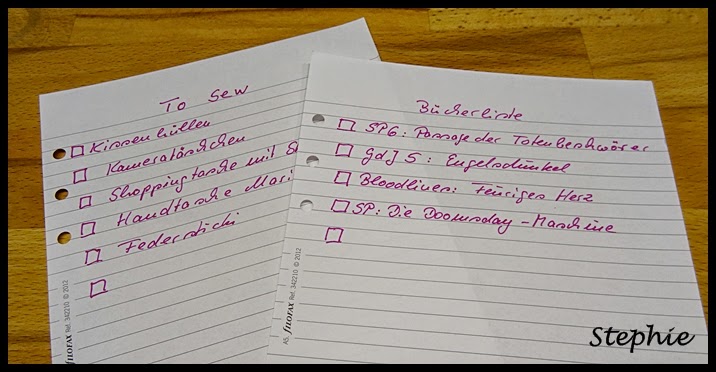 To Sew
Kissenhüllen
Kameratäschchen
Shoppingtasche mit
Handtasche
Federstichi
A5. fILOFAX Ref. 342210 © 2012
Bücherliste
SP6: Passage der Totenbeschwörer
GdJ 5: Engelsdunkel
Bloodlines: Feuriges Herz
SP: Die Doomsday-Maschine
A5. fILOFAX Ref. 342210 © 2012
Stephie